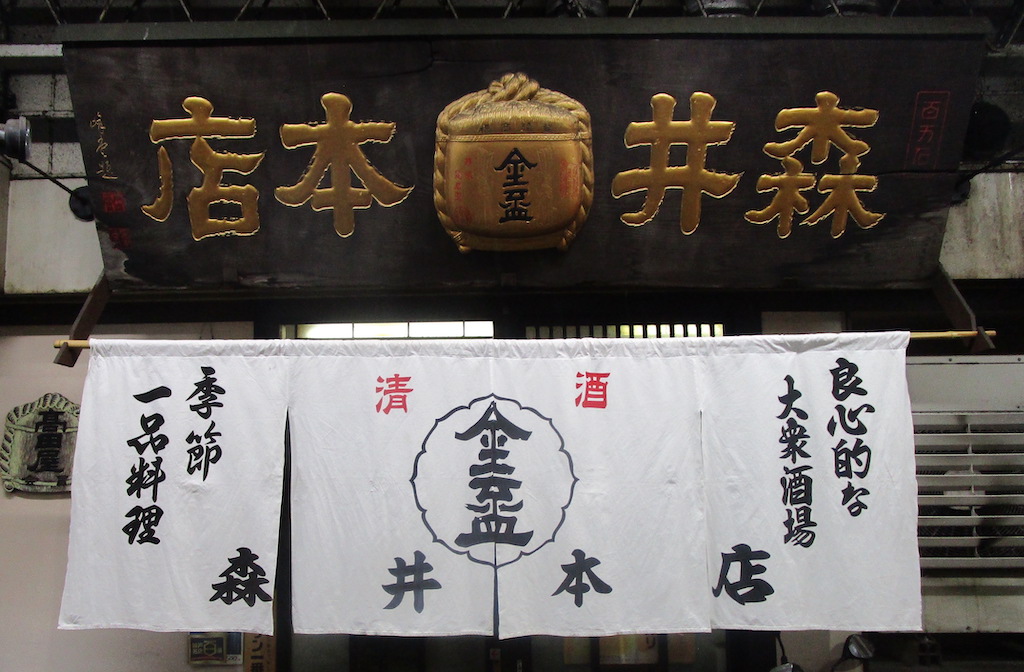 森井本店
金盃
良心的な
大衆酒場
清酒
金盃
季節
一品料理
森井本店
髙田屋